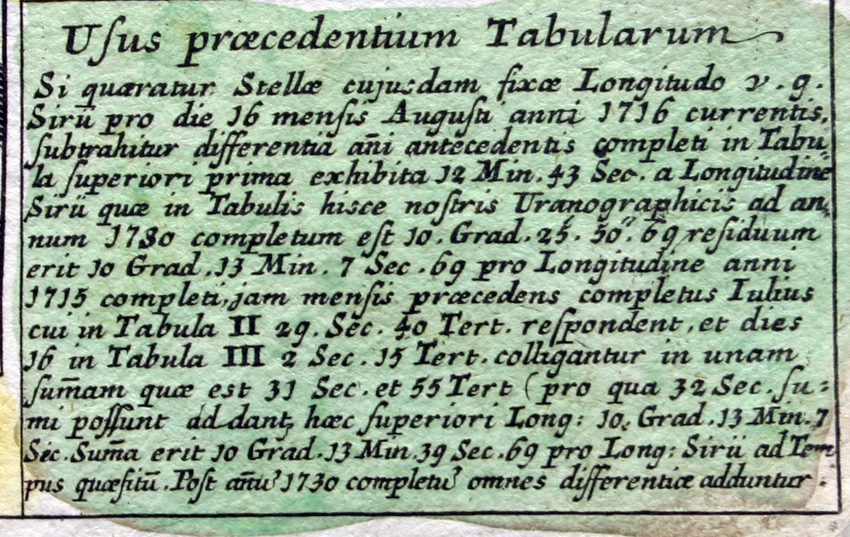 Uſus præcedentium Tabularum
Si quæratur Stellæ cujusdam fixæ Longitudo v. g.
Sirii pro die 16 mensis Auguſti anni 1716 currentis,
ſubtrahitur differentia añi antecedentis completi in Tabu
la ſuperiori prima exhibita 12 Min. 43 Sec. a Longitudine
Sirii quæ in Tabulis hisce noſtris Uranographicis ad an,
num 1730 completum eſt 10. Grad. 25. 50". 69 reſiduum
erit 10 Grad. 13 Min. 7 Sec. 69 pro Longitudine anni
1715 completi, jam mensis præcedens completus Iulius
cui in Tabula II 29. Sec. 40 Tert. reſpondent, et dies
16 in Tabula III 2 Sec. 15 Tert. colligantur in unam
ſum̃am quæ est 31 Sec. et 55 Tert (pro qua 32 Sec. ſu:
mi poſſunt addant, hæc ſuperiori Long: 10. Grad. 13 Min. 7
Sec. Sum̃a erit 10 Grad. 13 Min. 39 Sec. 69 pro Long: Sirii ad Tem
pus quæſitũ. Poſt añũ 1730 completũ omnes differentiæ adduntur.